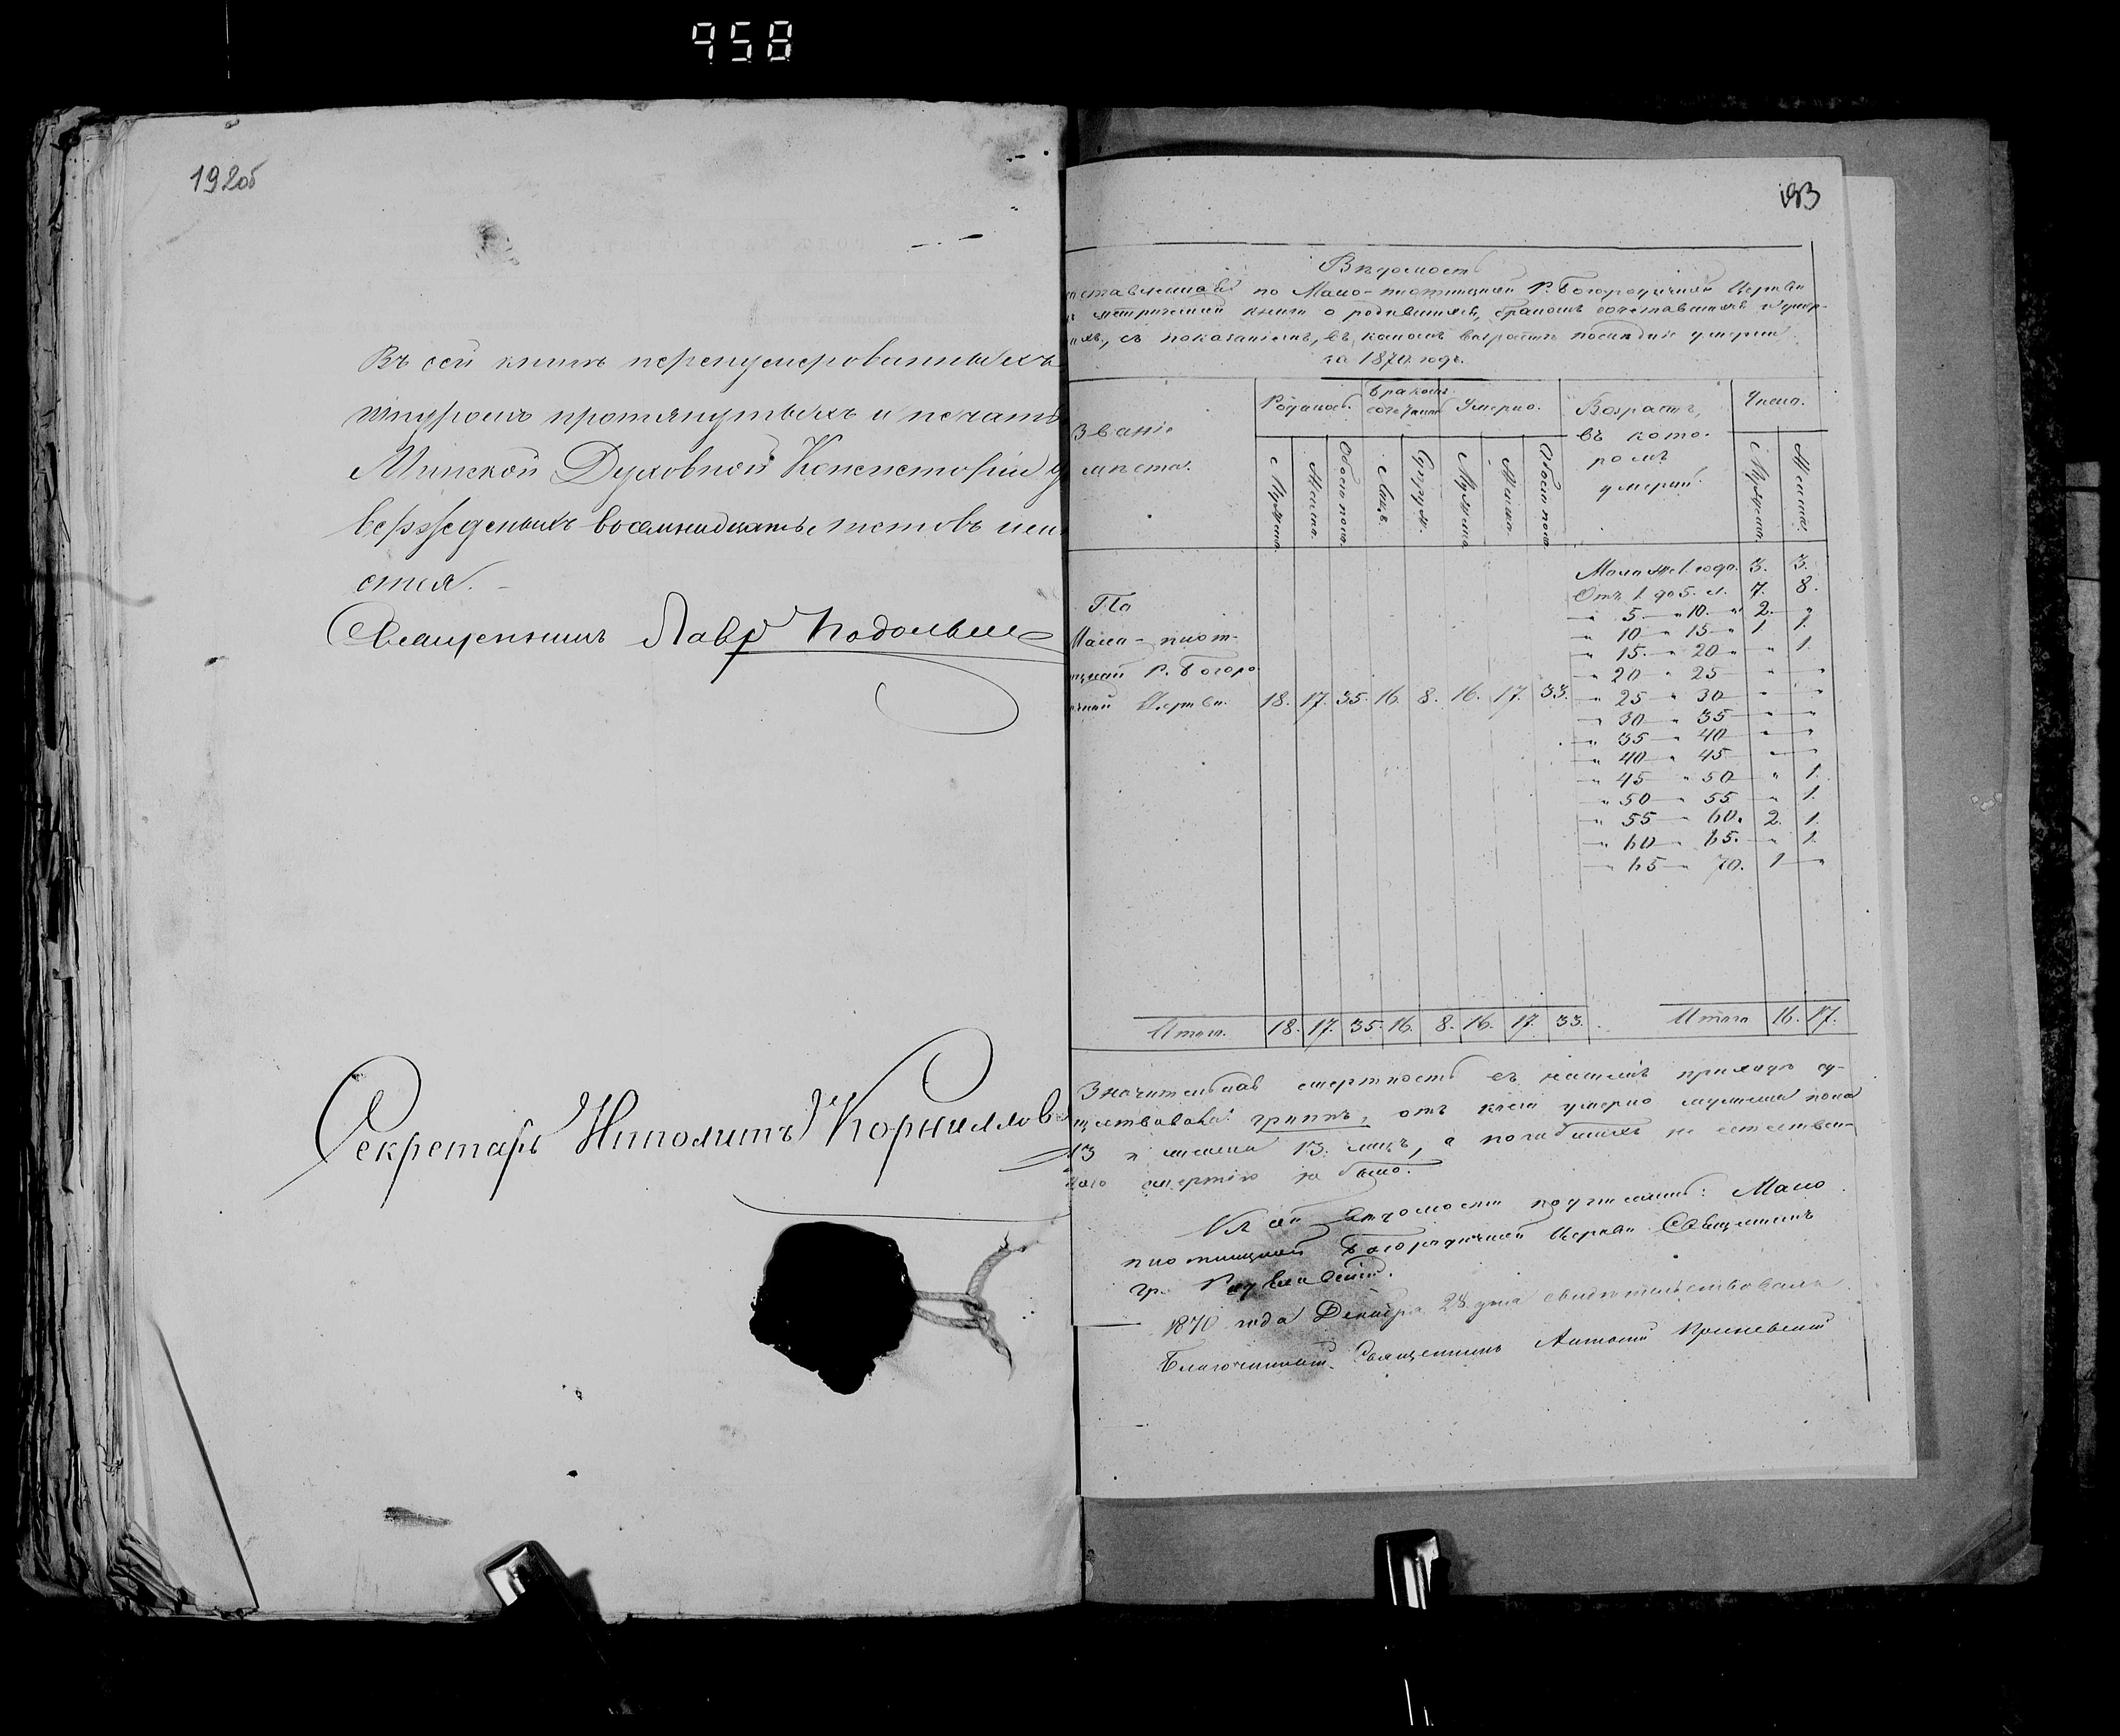 958
192об
Въ сей книгѣ перенумерованныхъ
шнуромъ протянутыхъ и печатью
Минской Духовной Консисторіи у
вержденныхъ восемнадцать листовъ
Священникъ Лавр
Секретарь Ипполитъ Корниллов
193
Вѣдомость
по Мало- Р. Богородичной Церкви
метрической книги о родившихся, бракомъ сочетавшихся и умер-
ихъ, съ показаніемъ, въ какомъ возрастѣ послѣдніе умерли
за 1870 годъ.
Званіе
мѣста.
Родилось.
Бракомъ
сочетаны
Умерло.
Возрастъ,
въ кото-
ромъ
умерли.
Число.
Мужеска.
Женска.
Обоего пола.
Лицъ.
Супруж.
Мужеска
Женска.
Обоего пола
Мужеска.
Женска.
По
Мало-
Р. Богоро
ичной Церкви. 18. 17. 35. 16. 8. 16. 17. 33.
Мала до 1. года. 3. 3.
Отъ 1. до 5. л. 7. 8.
" 5 " 10. " 2. "
" 10 " 15 " 1 1.
" 15. " 20 " " 1.
" 20 " 25 " "
" 25 " 30 " "
" 30 " 35 " "
" 35 " 40 " "
" 40 " 45 " "
" 45 " 50 " 1.
" 50 " 55 " 1.
" 55 " 60. 2. 1.
" 60 " 65. " 1.
" 65 " 70. 1 "
Итого. 18. 17. 35. 16. 8. 16. 17. 33.
Итого 16. 17.
Значительная смертность въ нашемъ приходѣ су-
ществовала: гриппъ, отъ коего умерло мужеска пола
13 и женска 13. лицъ, а погибшихъ не естествен-
ною смертію не было.
вѣдомости подписалъ: Мало
Богородичной Церкви Священникъ
гр.
1870 года Декабря 28 дня свидѣтельствовалъ
Благочинный Священникъ Антоній